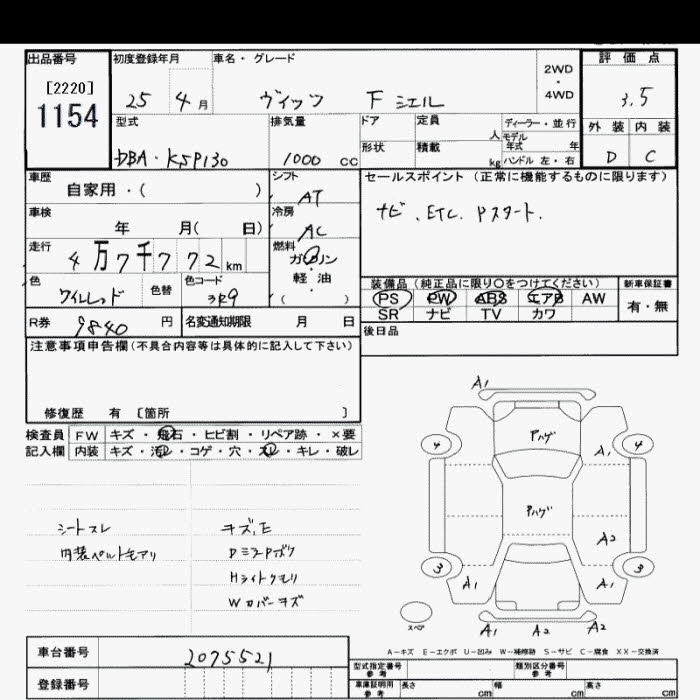 出品番号
[2220]
1154
初度登録年月
25 4 月
車名・グレード
ヴィッツ F シエル
2WD
・
4WD
評価点
3.5
外装 内装
D C
型式
DBA-KSP130
排気量
1000 cc
ドア
形状
定員
人
積載
kg
ディーラー・並行
モデル
年式 年
ハンドル 左・右
車歴
自家用・( )
シフト
AT
車検
年 月( 日)
冷房
AC
走行
4万7千772 km
燃料
ガソリン
・
軽油
( )
色
ワイルレッド
色替
色コード
3R9
R券
9840 円
名変通知期限 月 日
セールスポイント(正常に機能するものに限ります)
ナビ、ETC. Pスタート.
装備品(純正品に限り○をつけてください)
PS PW ABS エアB AW
SR ナビ TV カワ
新車保証書
有・無
後日品
注意事項申告欄(不具合内容等は具体的に記入して下さい)
修復歴 有 [箇所 ]
検査員
記入欄
FW キズ・飛石・ヒビ割・リペア跡・×要
内装 キズ・汚レ・コゲ・穴・スレ・キレ・破レ
シートスレ
内装ペルトモアリ
キズ,E
DミラPズク
Hライトクモリ
Wカバーキズ
A1
Pハゲ
4 4
A1
Pハゲ
A2
3 3
A1 A1
スペア
A1 A2 A2
A-キズ E-エクボ U-凹み W-補修跡 S-サビ C-腐食 XX-交換済
車台番号
2075521
登録番号
型式指定番号
参考
類別区分番号
参考
車庫証明用
参考
長さ cm 幅 cm 高さ cm